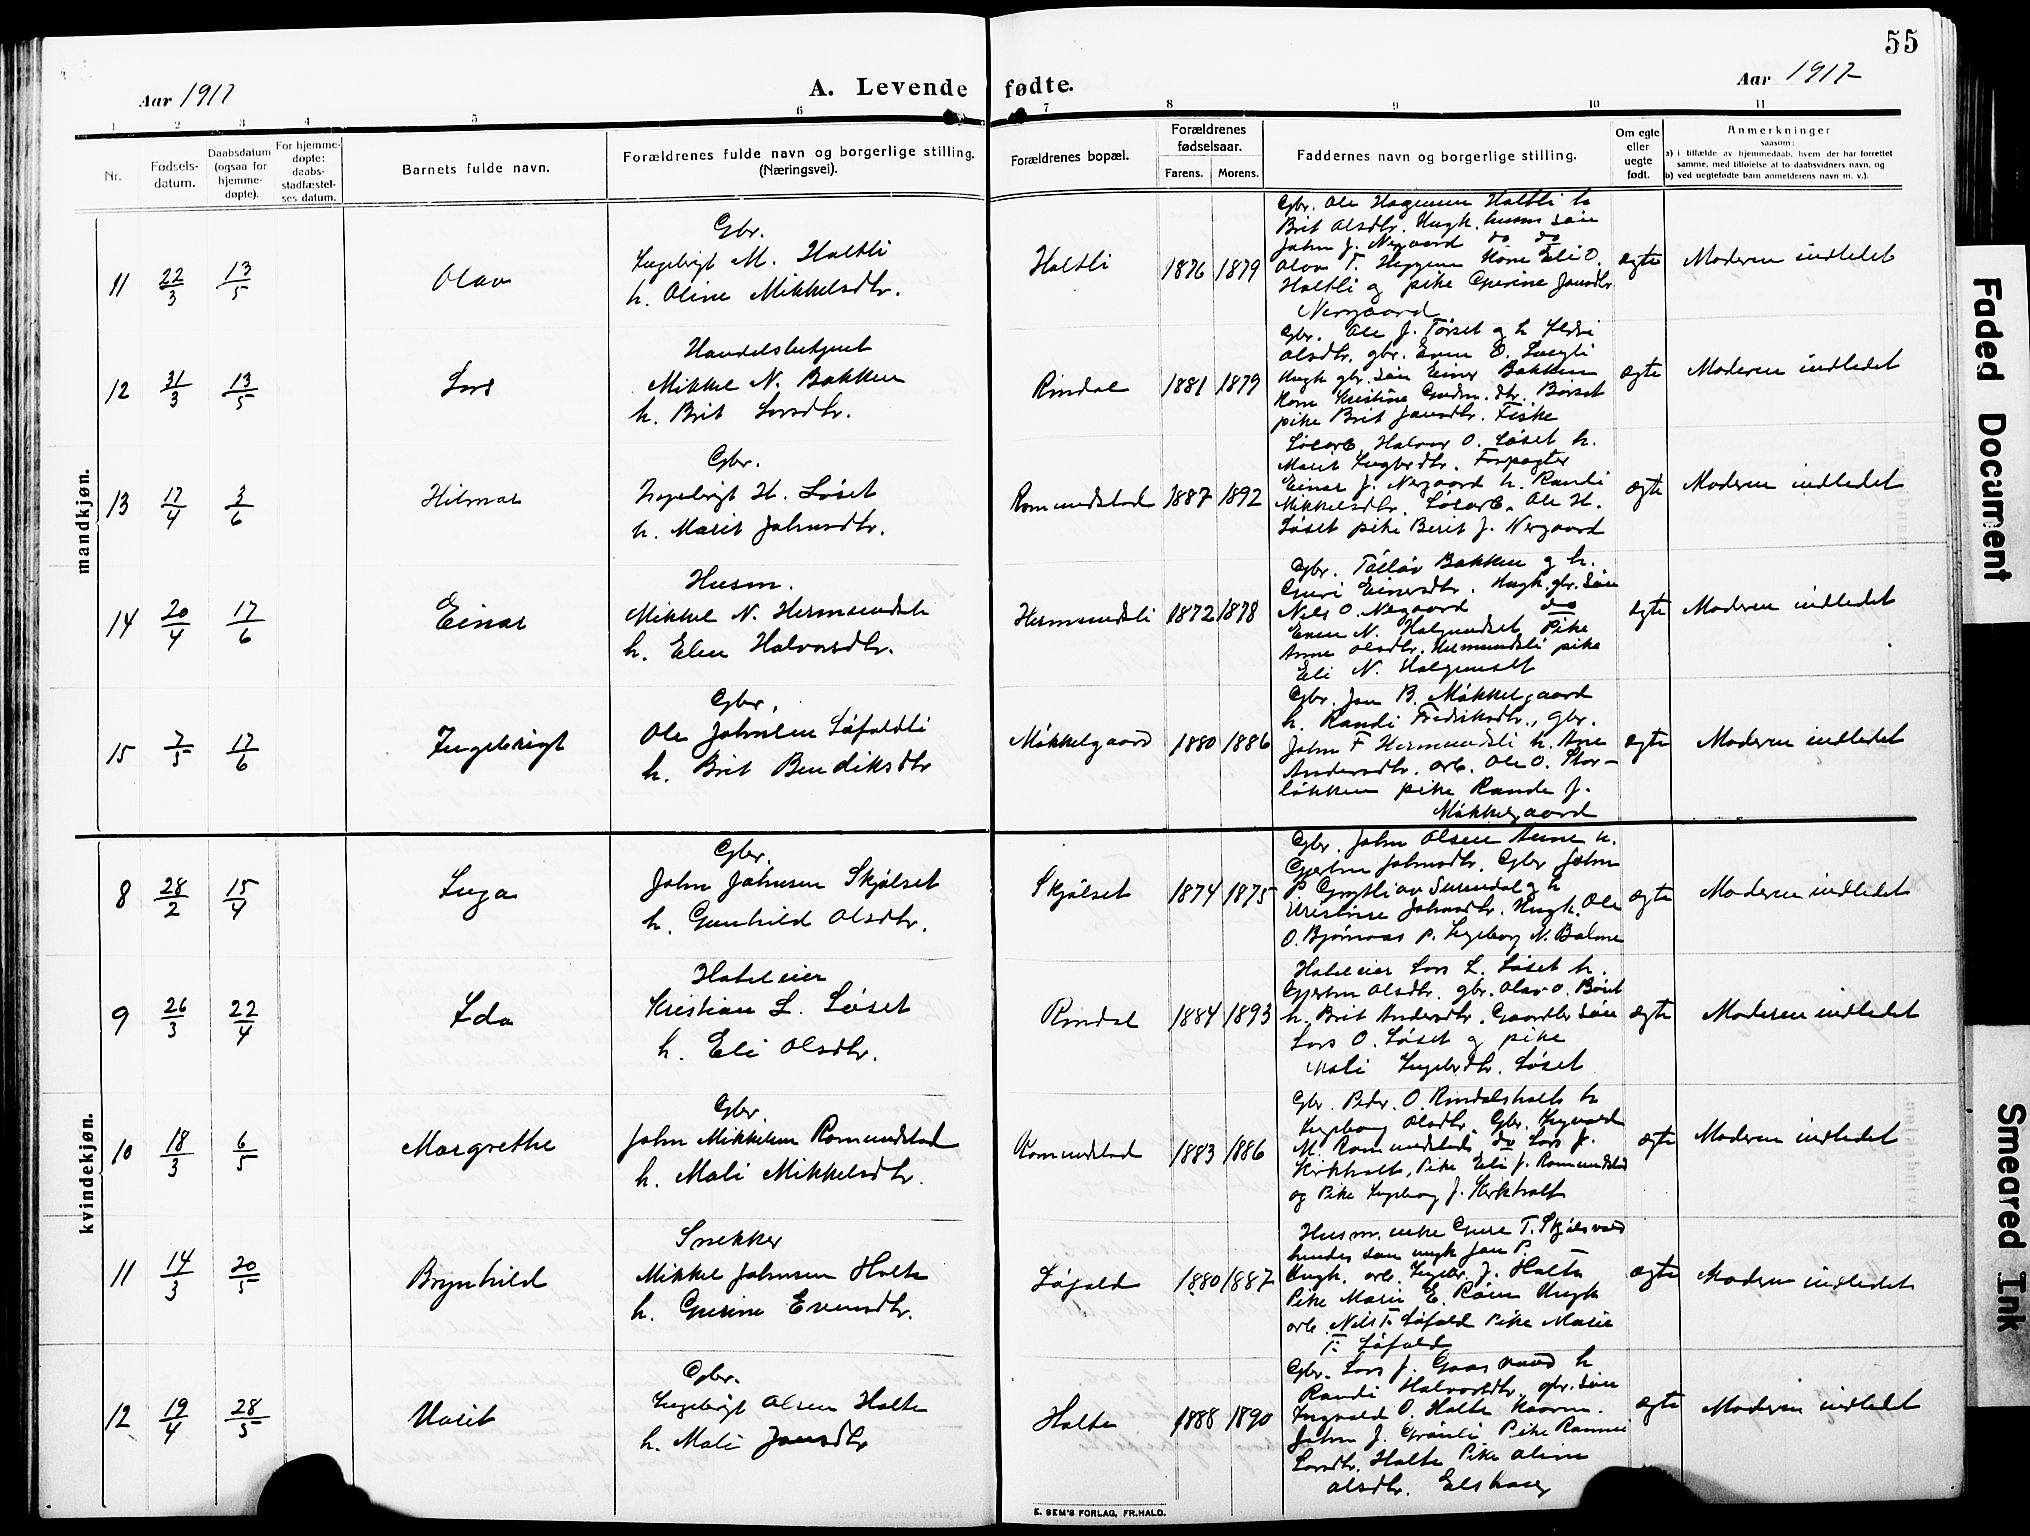 55
Aar 1917
A. Levende fødte.
Aar 1917
1 2 3 4 5 6 7 8 9 10 11
Nr.
Fødsels-
datum.
Daabsdatum
(ogsaa for
hjemme-
døpte).
For hjemme-
døpte:
daabs-
stadfæstel-
ses datum.
Barnets fulde navn.
Forældrenes fulde navn og borgerlige stilling.
(Næringsvei).
Forældrenes bopæl.
Forældrenes
fødselsaar.
Farens. Morens.
Faddernes navn og borgerlige stilling.
Om egte
eller
uegte
født.
Anmerkninger
saasom:
a) i tilfælde av hjemmedaab, hvem der har forrettet
samme, med tilføielse af to daabsvidners navn, og
b) ved uegtefødte barn anmelderens navn m. v.).
mandkjøn.
11 22/3 13/5 Olav
Gbr.
Ingebrigt M. Holtli
h. Oline Mikkelsdtr.
Holtli 1876 1879
Gbr. Ole Hagensen Holtli h
Brit Olsdtr. Ungk. husm søn
John J. Nergaard do do
Olav T. Heggem Kone Eli O.
Holtli og pike Guerine Jonsdtr
Nergaard
egte Moderen indledet
12 31/3 13/5 Lars
Handelsbetjent
Mikkel N. Bakken
h. Brit Larsdtr.
Rindal 1881 1879
Gbr. Ole J. Tørset og h
Olsdtr. gbr. Even
Ungk gbr. søn Einar Bakken
Kone Kristine Gudm. dtr. Børset
pike Brit Jonsdtr. Fiske
egte Moderen indledet
13 17/4 3/6 Hilmar
Gbr.
Ingebrigt H. Løset
h. Marit Johnsdtr.
Romundstad 1887 1892
Løsarb. Halvor O. Løset h.
Marit Ingbrdtr. Forpagter
Einar J. Nergaard h. Randi
Mikkelsdtr. Løsarb. Ole H.
Løset pike Berit J. Nergaard
egte Moderen indledet
14 20/4 17/6 Einar
Husm.
Mikkel N. Hermundsli
h. Elen Halvorsdtr.
Hermundsli 1872 1878
Gbr. Tølløv Bakken og h.
Guri Einersdtr. Ungk. gbr. søn
Nils O. Negaard do
Even N. Halgunset Pike
Anne Olsdtr. Hermundsli pike
Eli N. Halgunset
egte Moderen indledet
15 7/5 17/6 Ingebrigt
Gbr.
Ole Johnsen Løfaldli
h. Brit Bendiksdtr
Møkkelgaard 1880 1886
Gbr. Jon B. Møkkelgaard
h. Randi Fredriksdtr., gbr.
John F Hermundsli h. Ane
Andersdtr. arb. Ole O. Stor-
løkken pike Rande J.
Møkkelgaard
egte Moderen indledet
kvindekjøn.
8 28/2 15/4 Inga
Gbr.
John Johnsen Skjølset
h. Gunhild Olsdtr.
Skjølset 1874 1875
Gbr. John Olsen Aune h.
Gjertru Johnsdtr. Gbr John
P Grytli av Surendal og h
Kristine Johnsdtr. Ungk. Ole
O. Bjørnaas p. Ingeborg N. Bolme
egte Moderen indledet
9 26/3 22/4 Ida
Hoteleier
Kristian L. Løset
h. Eli Olsdtr.
Rindal 1884 1893
Hoteleier Lars L. Løset h.
Gjertru Olsdtr. gbr. Olav O. Børset
h. Brit Andersdtr. Gaardbr søn
Lars O. Løset og pike
Mali Ingebrdtr. Løset
egte Moderen indledet
10 18/3 6/5 Margrethe
Gbr.
John Mikkelsen Romundstad
h. Mali Mikkelsdtr.
Romundstad 1883 1886
Gbr. Peder O. Rindalsholt h
Ingeborg Olsdtr. Gbr. Ingvald
M. Romundstad do Lars J.
Kirkholt, Pike Eli J. Romundstad
og Pike Ingeborg J. Kirkholt
egte Moderen indledet
11 14/3 20/5 Brynhild
Snekker
Mikkel Johnsen Holte
h. Gurine Evensdtr.
Løfald 1880 1887
Husm. enke Gure T. Skjølsvold
hendes søn ungk Jon P.
Ungk. arb. Ingebr. J. Holte
Pike Marie E. Røen Ungk
arb. Nils T. Løfald Pike Marie
T. Løfald
egte Moderen indledet
12 19/4 28/5 Marit
Gbr.
Ingebrigt Olsen Holte
h. Mali Jonsdtr
Holte 1888 1890
Gbr. Lars J. Gaasvand h
Randi Halvorsdtr, gbr. søn
Ingvald O. Holte
John J. Grønli Pike
Larsdtr. Holte Pike Oline
Olsdtr. Elshaug
egte Moderen indledet
E. SEM'S FORLAG, FR.HALD.
Faded Document
Smeared Ink